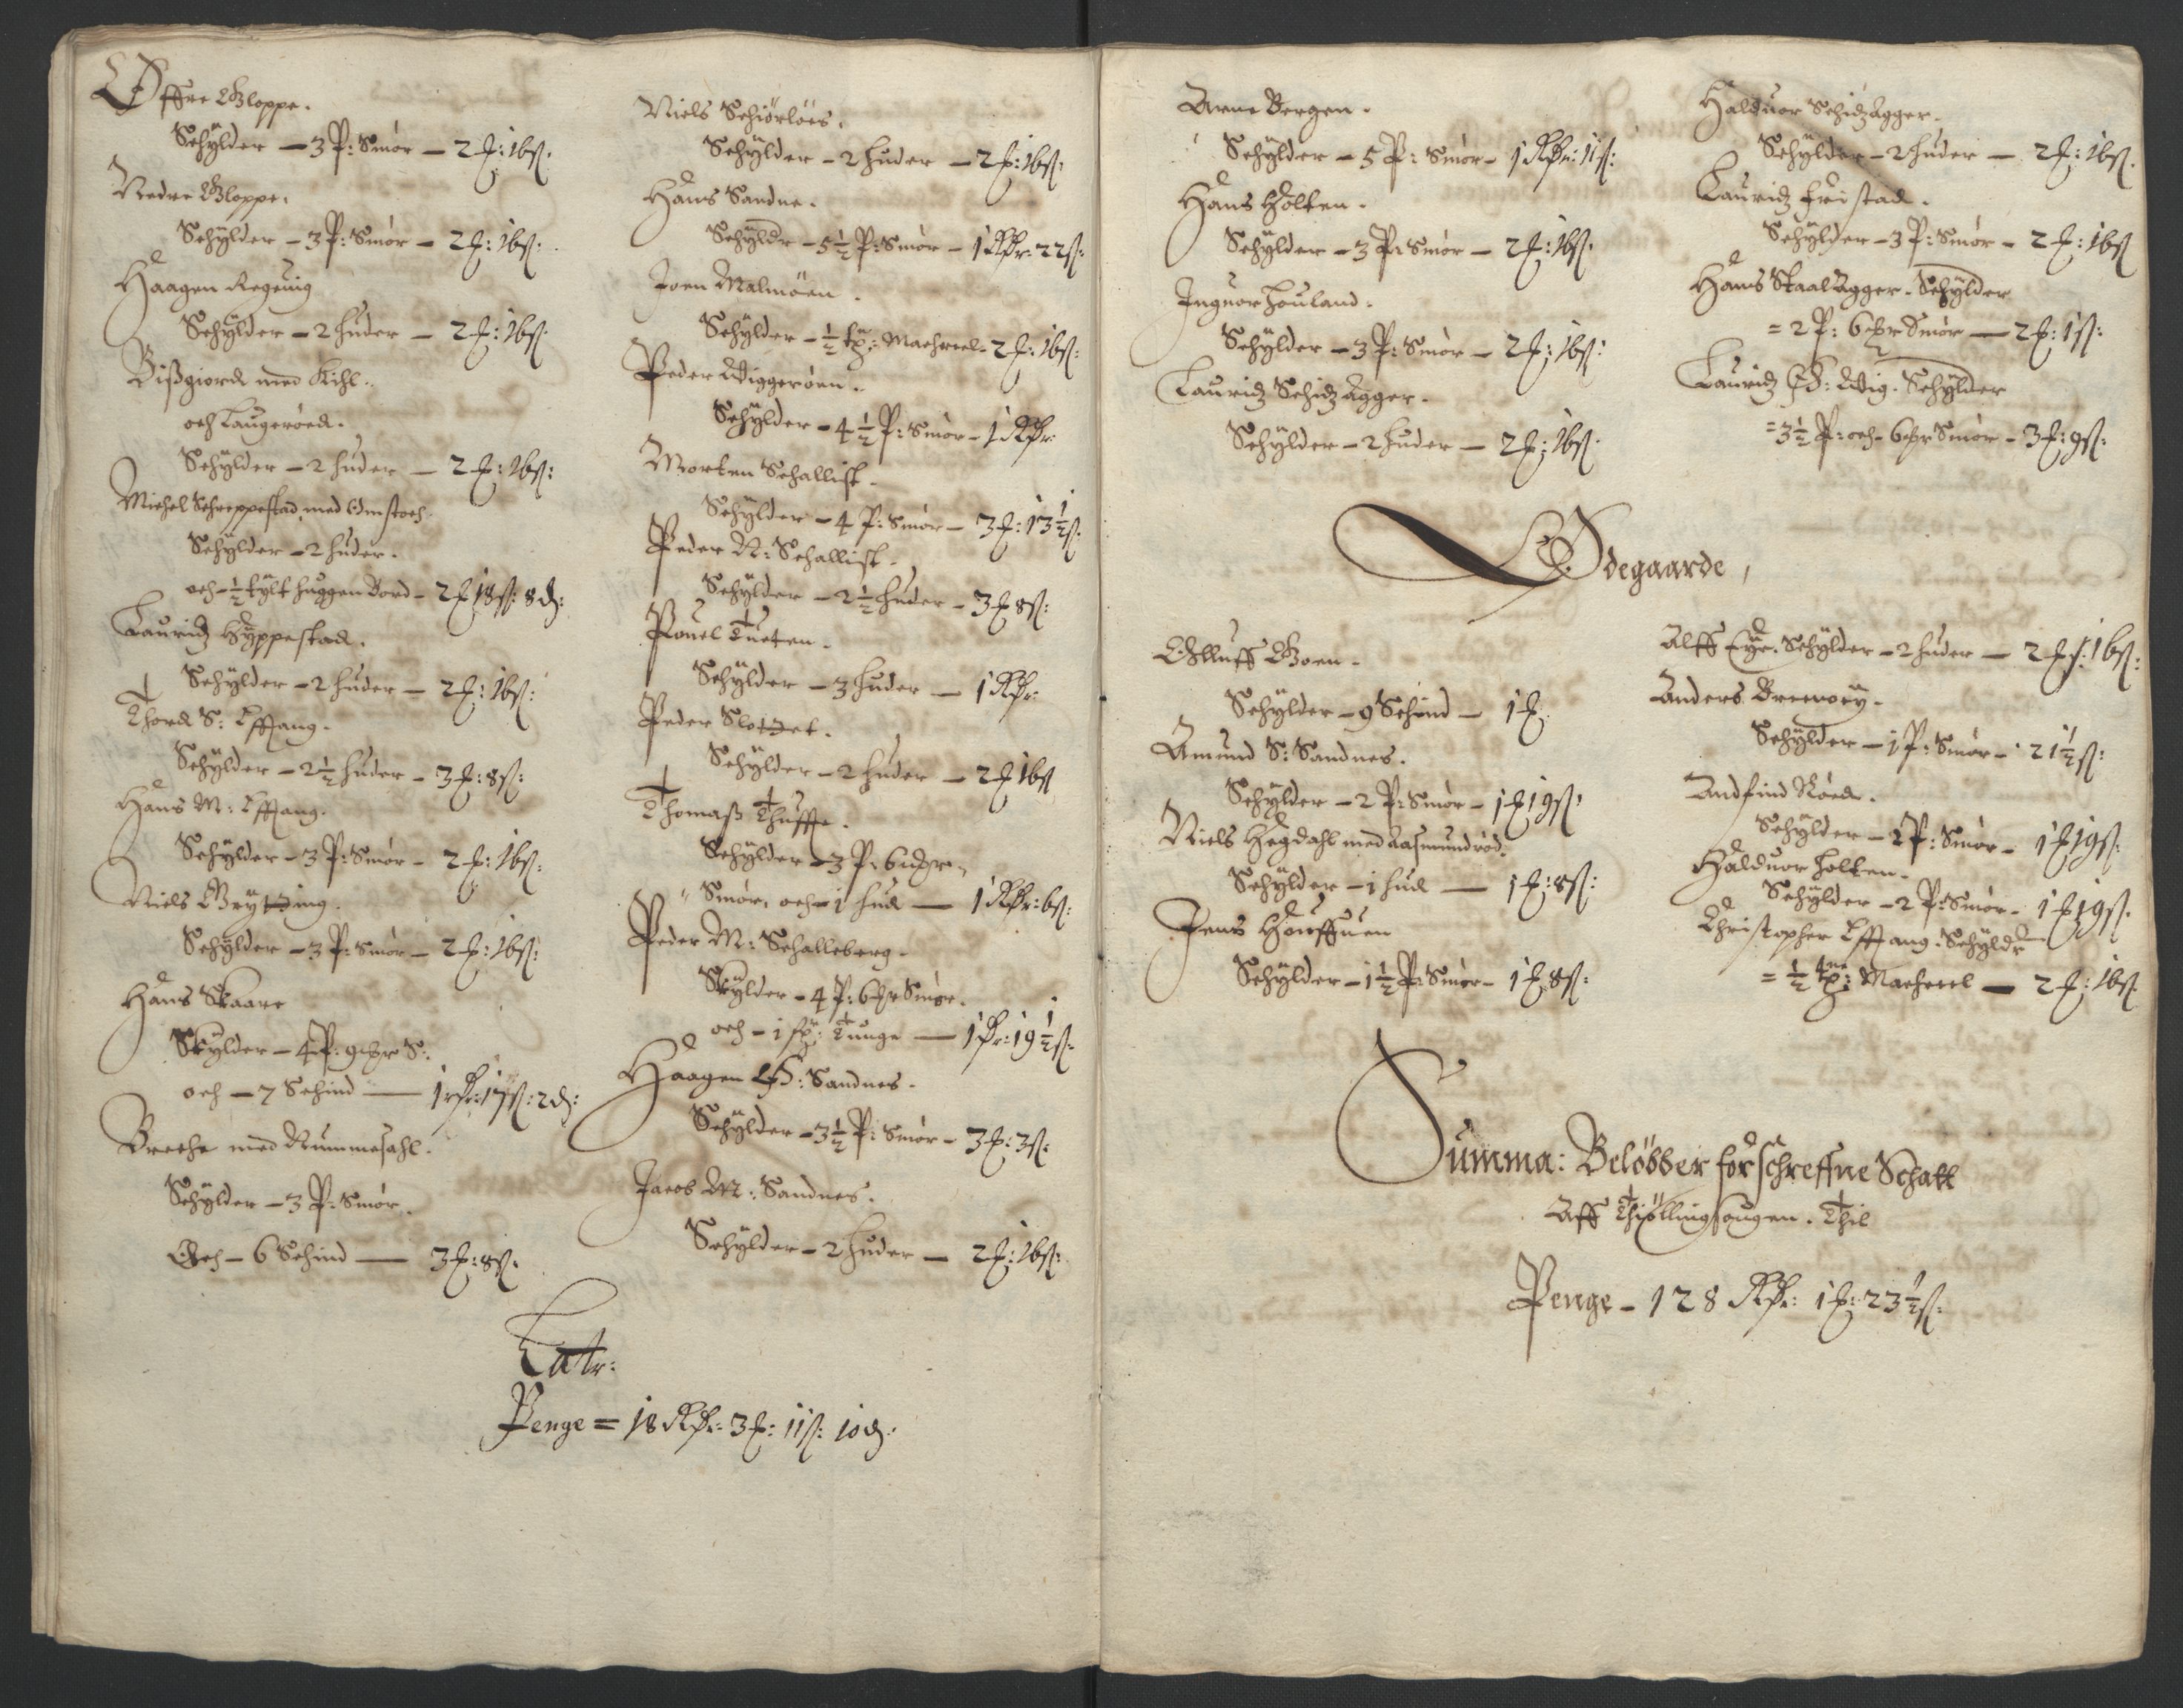 Øffre Gloppe.
Schylder – 3 P: Smör – 2 £: 16 ß:
Nedre Gloppe.
Schylder – 3 P: Smör – 2 £: 16 ß:
Haagen Regeuig
Schylder – 2 huder – 2 £: 16 ß:
Bißgiord med Kihl.
och Laugeröed.
Schylder – 2 huder – 2 £: 16 ß:
Michel Schreppestad, med
Schylder – 2 huder.
och – ½ tylt huggen Bord – 2 £ 18 ß: 8 ₰:
Lauridz Hyppestad.
Schylder – 2 huder – 2 £: 16 ß:
Thord S: Effang.
Schylder – 2½ huder – 3 £: 8 ß:
Hans M: Effang.
Schylder – 3 P: Smör – 2 £: 16 ß:
Niels Grytting.
Schylder – 3 P: Smör – 2 £: 16 ß:
Hans Skaare
Skylder – 4 P: 9 chr S:
och – 7 Schind — 1 rßr: 17 ß: 2 ₰:
Breche med Rummesahl.
Schylder – 3 P: Smör.
Och – 6 Schind — 3 £: 8 ß:
Niels Schiörlöes.
Schylder – 2 huder – 2 £: 16 ß:
Hans Sandne.
Schyldr – 5½ P: Smör – 1 Rßr: 22 ß:
Joen Malmöen.
Schylder – ½ tp: Machreel – 2 £: 16 ß:
Peder Wiggeröen.
Schylder – 4½ P: Smör – 1 Rßr
Morten Schallist.
Schylder – 4 P: Smör – 3 £: 13½ ß:
Peder N: Schallist.
Schylder – 2½ huder – 3 £ 8 ß:
Pouel Tueten.
Schylder – 3 huder — 1 Rßr:
Peder Slottet.
Schylder – 2 huder – 2 £ 16 ß
Thomaß Thuffte.
Schylder – 3 P: 6 chr
Smör, och – 1 hud — 1 Rßr: 6 ß:
Peder M: Schalleberg.
Skylder – 4 P: 6 chr Smör.
och – 1 sp: Tunge — 1 ßr: 19½ ß:
Haagen Ø: Sandnes.
Schylder – 3½ P: Smör – 3 £: 3 ß:
Jacob M: Sandnes.
Schylder – 2 huder — 2 £: 16 ß:
Latr:
Penge = 18 Rßr: 3 £: 11 ß: 10 ₰:
Arne Bergen.
Schylder – 5 P: Smör – 1 Rßr: 11 ß:
Hans Holten.
Schylder – 3 P: Smör – 2 £: 16 ß:
Inguor Houland.
Schylder – 3 P: Smör – 2 £: 16 ß:
Lauridz Schidz Agger.
Schylder – 2 huder — 2 £: 16 ß:
Halduor Schidz Agger.
Schylder – 2 huder — 2 £: 16 ß.
Lauridz Fristad.
Schylder – 3 P: Smör – 2 £: 16 ß
Hans Skaal Agger. Schylder
= 2 P: 6 chr Smör — 2 £: 1 ß:
Lauridz Ø: Wiig. Schylder
= 3½ P: och – 6 chr Smör – 3 £: 9 ß:
Ødegaarde,
Olluff Goen.
Schylder – 9 Schind – 1 £
Amund S: Sandnes.
Schylder – 2 P: Smör – 1 £ 19 ß:
Niels Hegdahl med Aasmundröd.
Schylder – 1 hud — 1 £: 8 ß:
Jens Houffuen
Schylder – 1½ P: Smör – 1 £ 8 ß:
Alff Eye. Schylder – 2 huder — 2 £: 16 ß:
Anders Breeuog.
Schylder – 1 P: Smör – 21½ ß:
Andfind Röed.
Schylder – 2 P: Smör – 1 £ 19 ß:
Halduor Holten.
Schylder – 2 P: Smör – 1 £ 19 ß.
Christopher Effang. Schyldr
= ½ tne: Machreel — 2 £: 16 ß
Summa: Belöbber forschreffne Schatt
Aff Thiöllingsougen. Thil
Penge – 128 Rßr: 1 £: 23½ ß: